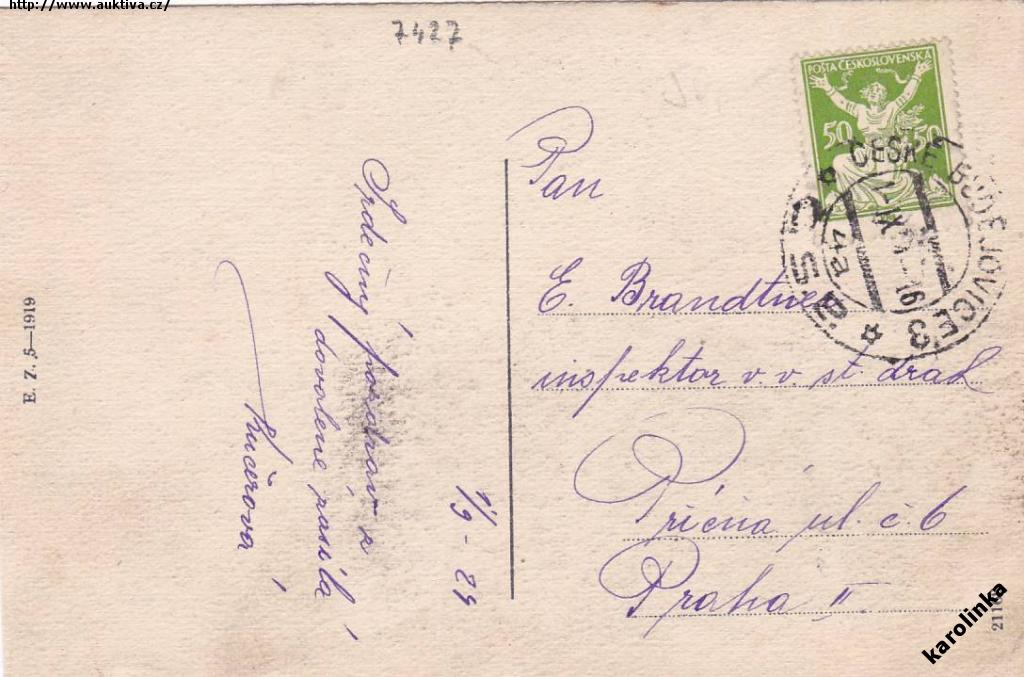 http://www.auktiva.cz/
7427
POŠTA ČESKOSLOVENSKÁ
50 50
ČESKÉ BUDĚJOVICE 3
4a
Pan
E. Brandtner
inspektor v.v. st. drah
Příčná ul. č. 6
Praha II.
Srdečný pozdrav z
dovolené posílá
Kučerová
1/9 - 24
E. Z. 5—1919
karolinka